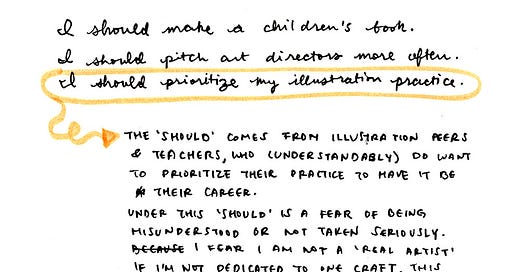 I should make a children's book.
I should pitch art directors more often.
I should prioritize my illustration practice.
THE 'SHOULD' COMES FROM ILLUSTRATION PEERS
& TEACHERS, WHO (UNDERSTANDABLY) DO WANT
TO PRIORITIZE THEIR PRACTICE TO HAVE IT BE
THEIR CAREER.
UNDER THIS 'SHOULD' IS A FEAR OF BEING
MISUNDERSTOOD OR NOT TAKEN SERIOUSLY.
BECAUSE I FEAR I AM NOT A 'REAL ARTIST'
IF I'M NOT DEDICATED TO ONE CRAFT. THIS